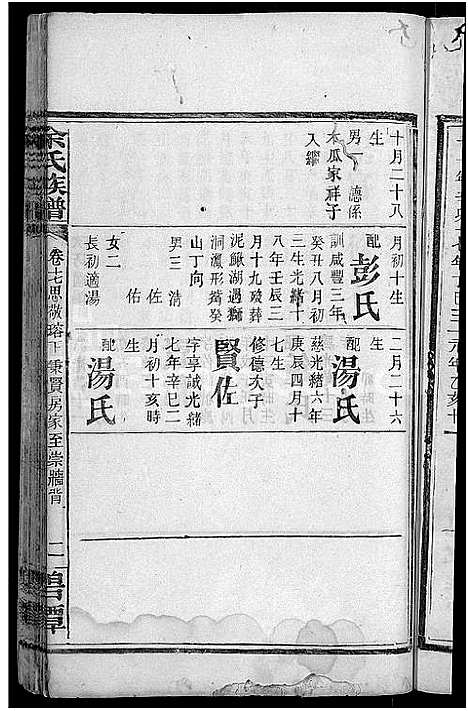 十月二十八
生
男一 德係
木瓜家祥子
入繼
月初十生
配彭氏
訓咸豐三年
癸丑八月初
三生光緒十
八年壬辰三
月十九歿葬
泥鰍湖過獅
洞瀠形癸
山丁向
男三 清
佐
佑
女二
長初適湯
二月二十六
生
配湯氏
慈光緒六年
庚辰四月十
七生
賢佐
修德次子
字享誠光緒
七年辛巳二
月初十亥時
生
配湯氏
余氏族譜
卷十七思敬瑢下秉賢房家至崇牆背
二